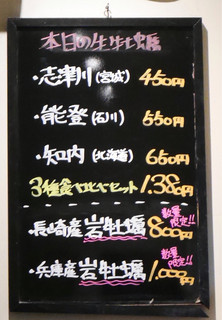 本日の生牡蠣
・志津川(宮城) 450円
・能登(石川) 550円
・知内(北海道) 650円
3種食べ比べセット 1.380
数量限定!!
・長崎産岩牡蠣 800円
数量限定!!
・兵庫産岩牡蠣 1.000円